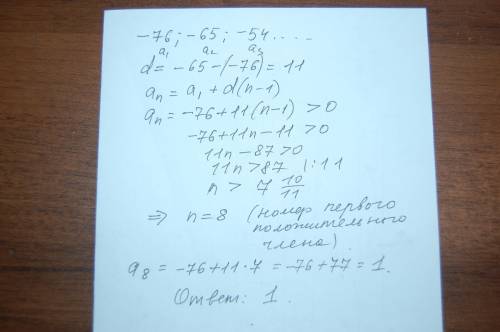 -76; -65; -54....
a₁ a₂ a₃
d = -65-(-76) = 11
aₙ = a₁ + d(n-1)
aₙ = -76+11(n-1) >0
-76+11n-11 >0
11n-87>0
11n >87 |:11
n > 7 10/11
⇒ n=8 (номер первого
положительного
члена).
a₈ = -76+11·7 = -76+77 = 1.
Ответ: 1.